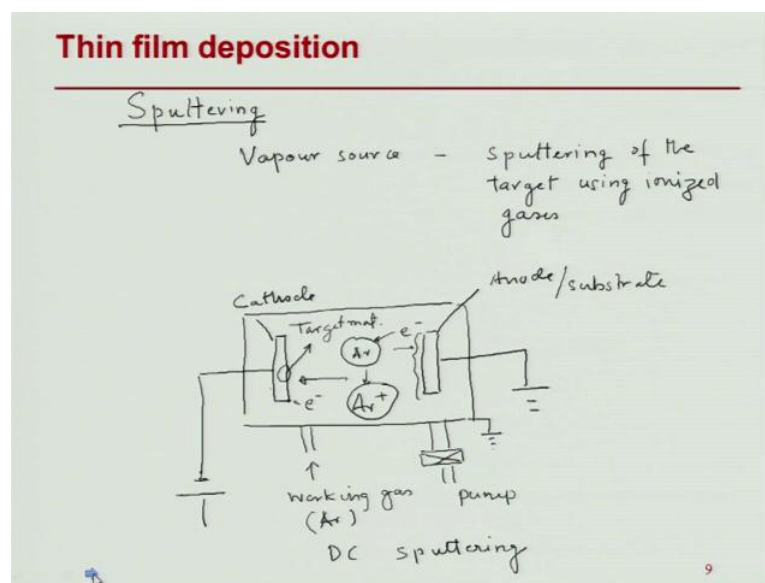 Thin film deposition
Sputtering
Vapour source - sputtering of the
target using ionized
gases
Anode/substrate
Cathode
Target mat.
e-
Ar
e-
Ar+
working gas
(Ar)
pump
DC sputtering
9